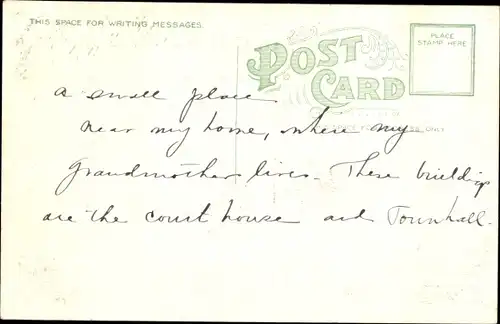 THIS SPACE FOR WRITING MESSAGES.
POST CARD
PLACE STAMP HERE
ONLY
a small place
near my home, where my
grandmother lives. These buildings
are the court house and Townhall.